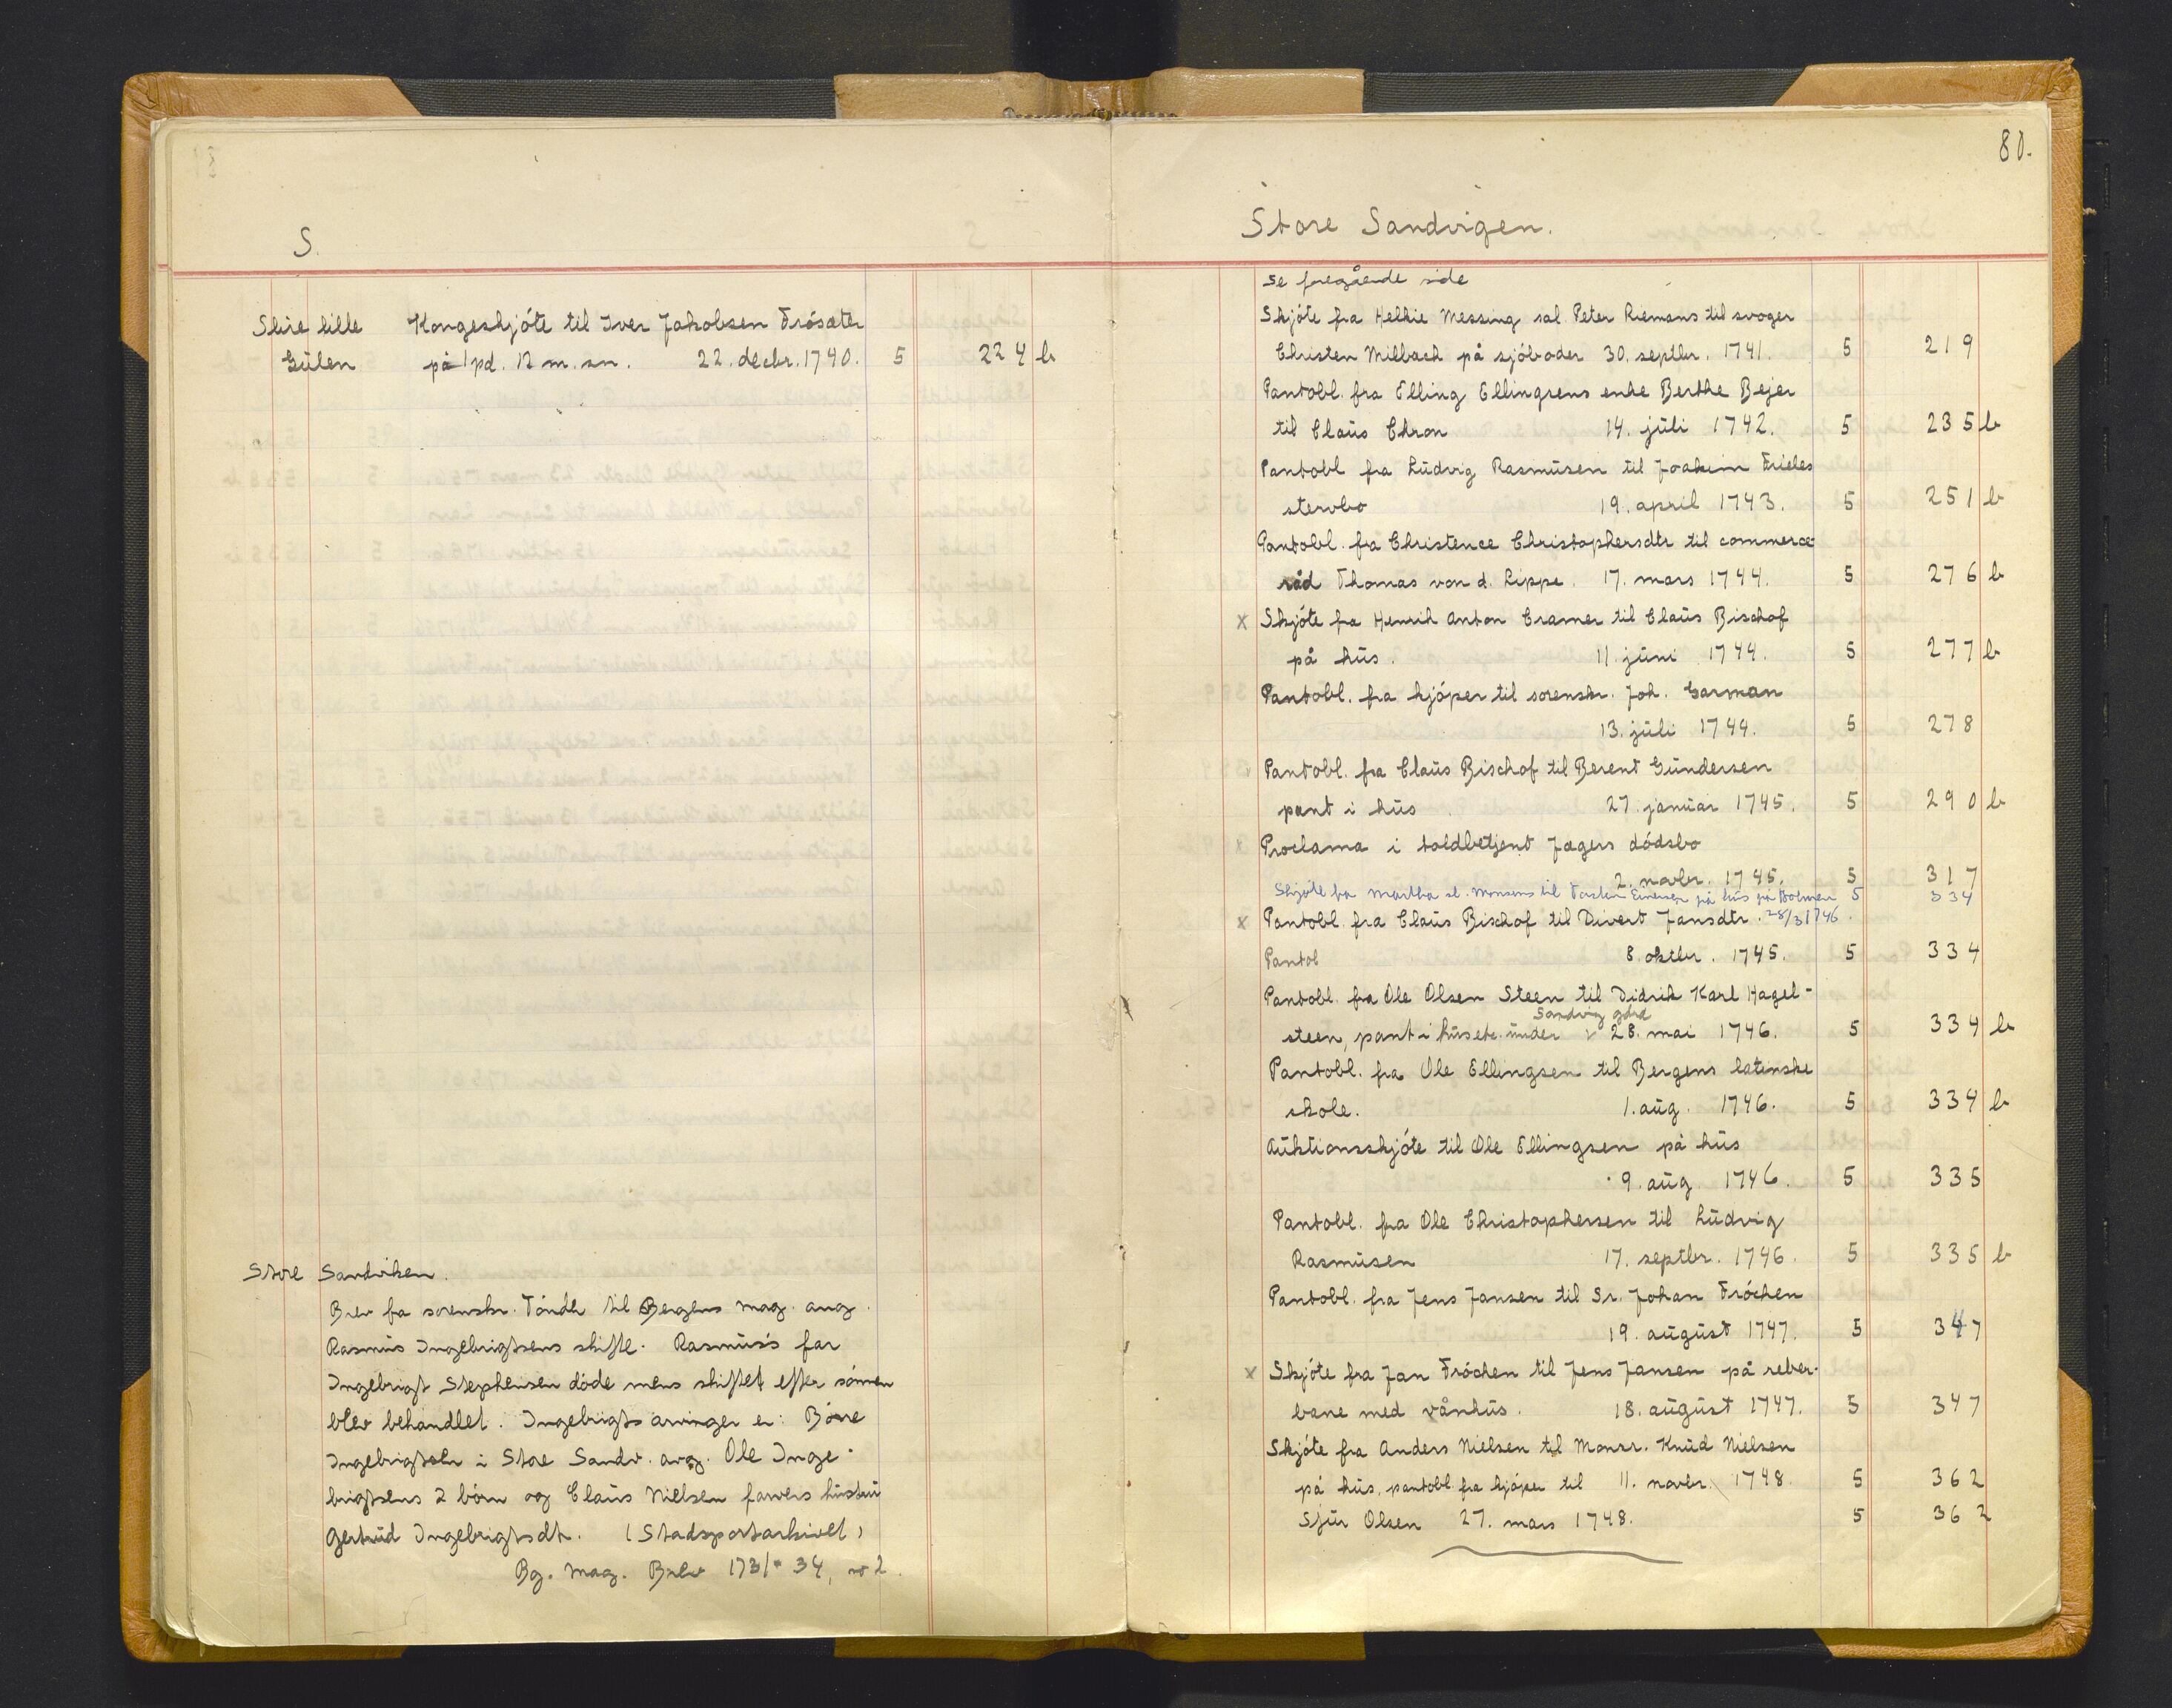 S.
Slire lille Kongeskjöte til Iver Jakobsen Frösæter
Gülen på 1 pd. 12 m. sn. 22. decbr. 1740. 5 224 b
Store Sandviken.
Brev fra sorenskr. Tönder til Bergens mag. ang.
Rasmus Ingebrigtsens skifte. Rasmus's far
Ingebrigt Stephensen döde mens skiftet efter sönnen
blev behandlet. Ingebrigts arvinger er: Börre
Ingebrigtsen i Store Sandv. avg. Ole Inge-
brigtsens 2 börn og Claüs Nielsen farvers hüstrü
Gertrüd Ingebrigtsdtr. (Stadsportarkivet)
Bg. Mag. Brev 1731-34, nr 2.
80.
Store Sandvigen.
Se foregående side
Skjöte fra Helkie Messing sal. Peter Riemans til svoger
Christen Milbach på sjöboder 30. septbr. 1741. 5 219
Pantobl. fra Elling Ellingsens enke Berthe Bejer
til Claüs Chron 14. jüli 1742. 5 235 b
Pantobl fra Lüdvig Rasmüsen til Joakim Frieles
stervbo 19. april 1743. 5 251 b
Pantobl. fra Christence Christophersdtr til commerce-
råd Thomas von d. Lippe. 17. mars 1744. 5 276 b
x Skjöte fra Henrik Anton Cramer til Claüs Bischof
på hüs. 11. jüni 1744. 5 277 b
Pantobl. fra kjöper til sorenskr. Joh. Garman
13. jüli 1744. 5 278
Pantobl. fra Claüs Bischof til Berent Gündersen
pant i hüs 27. janüar 1745. 5 290 b
Proclama i toldbetjent Jægers dödsbo
2. novbr. 1745. 5 317
Skjöte fra Martha sl. Monsens til Torsten Einersen på hüs på Holmen 5 334
x Pantobl. fra Claüs Bischof til Divert Jansdtr. 28/3 1746.
Pantob 8. oktbr. 1745. 5 334
Pantobl. fra Ole Olsen Steen til Didrik Karl Hagel-
Sandvig gård
steen, pant i hüs etc. ünder v 28. mai 1746. 5 334 b
Pantobl. fra Ole Ellingsen til Bergens latinske
skole. 1. aüg. 1746. 5 334 b
Aüktionsskjöte til Ole Ellingsen på hüs
9. aüg. 1746. 5 335
Pantobl. fra Ole Christophersen til Lüdvig
Rasmüsen 17. septbr. 1746. 5 335 b
Pantobl. fra Jens Jansen til Sr. Johan Fröchen
19. aügüst 1747. 5 347
x Skjöte fra Jan Fröchen til Jens Jansen på reber-
bane med vånhüs. 18. aügüst 1747. 5 347
Skjöte fra Anders Nielsen til Monsr. Knüd Nielsen
på hüs, pantobl. fra kjöper til 11. novbr. 1748. 5 362
Sjür Olsen 27. mars 1748. 5 362